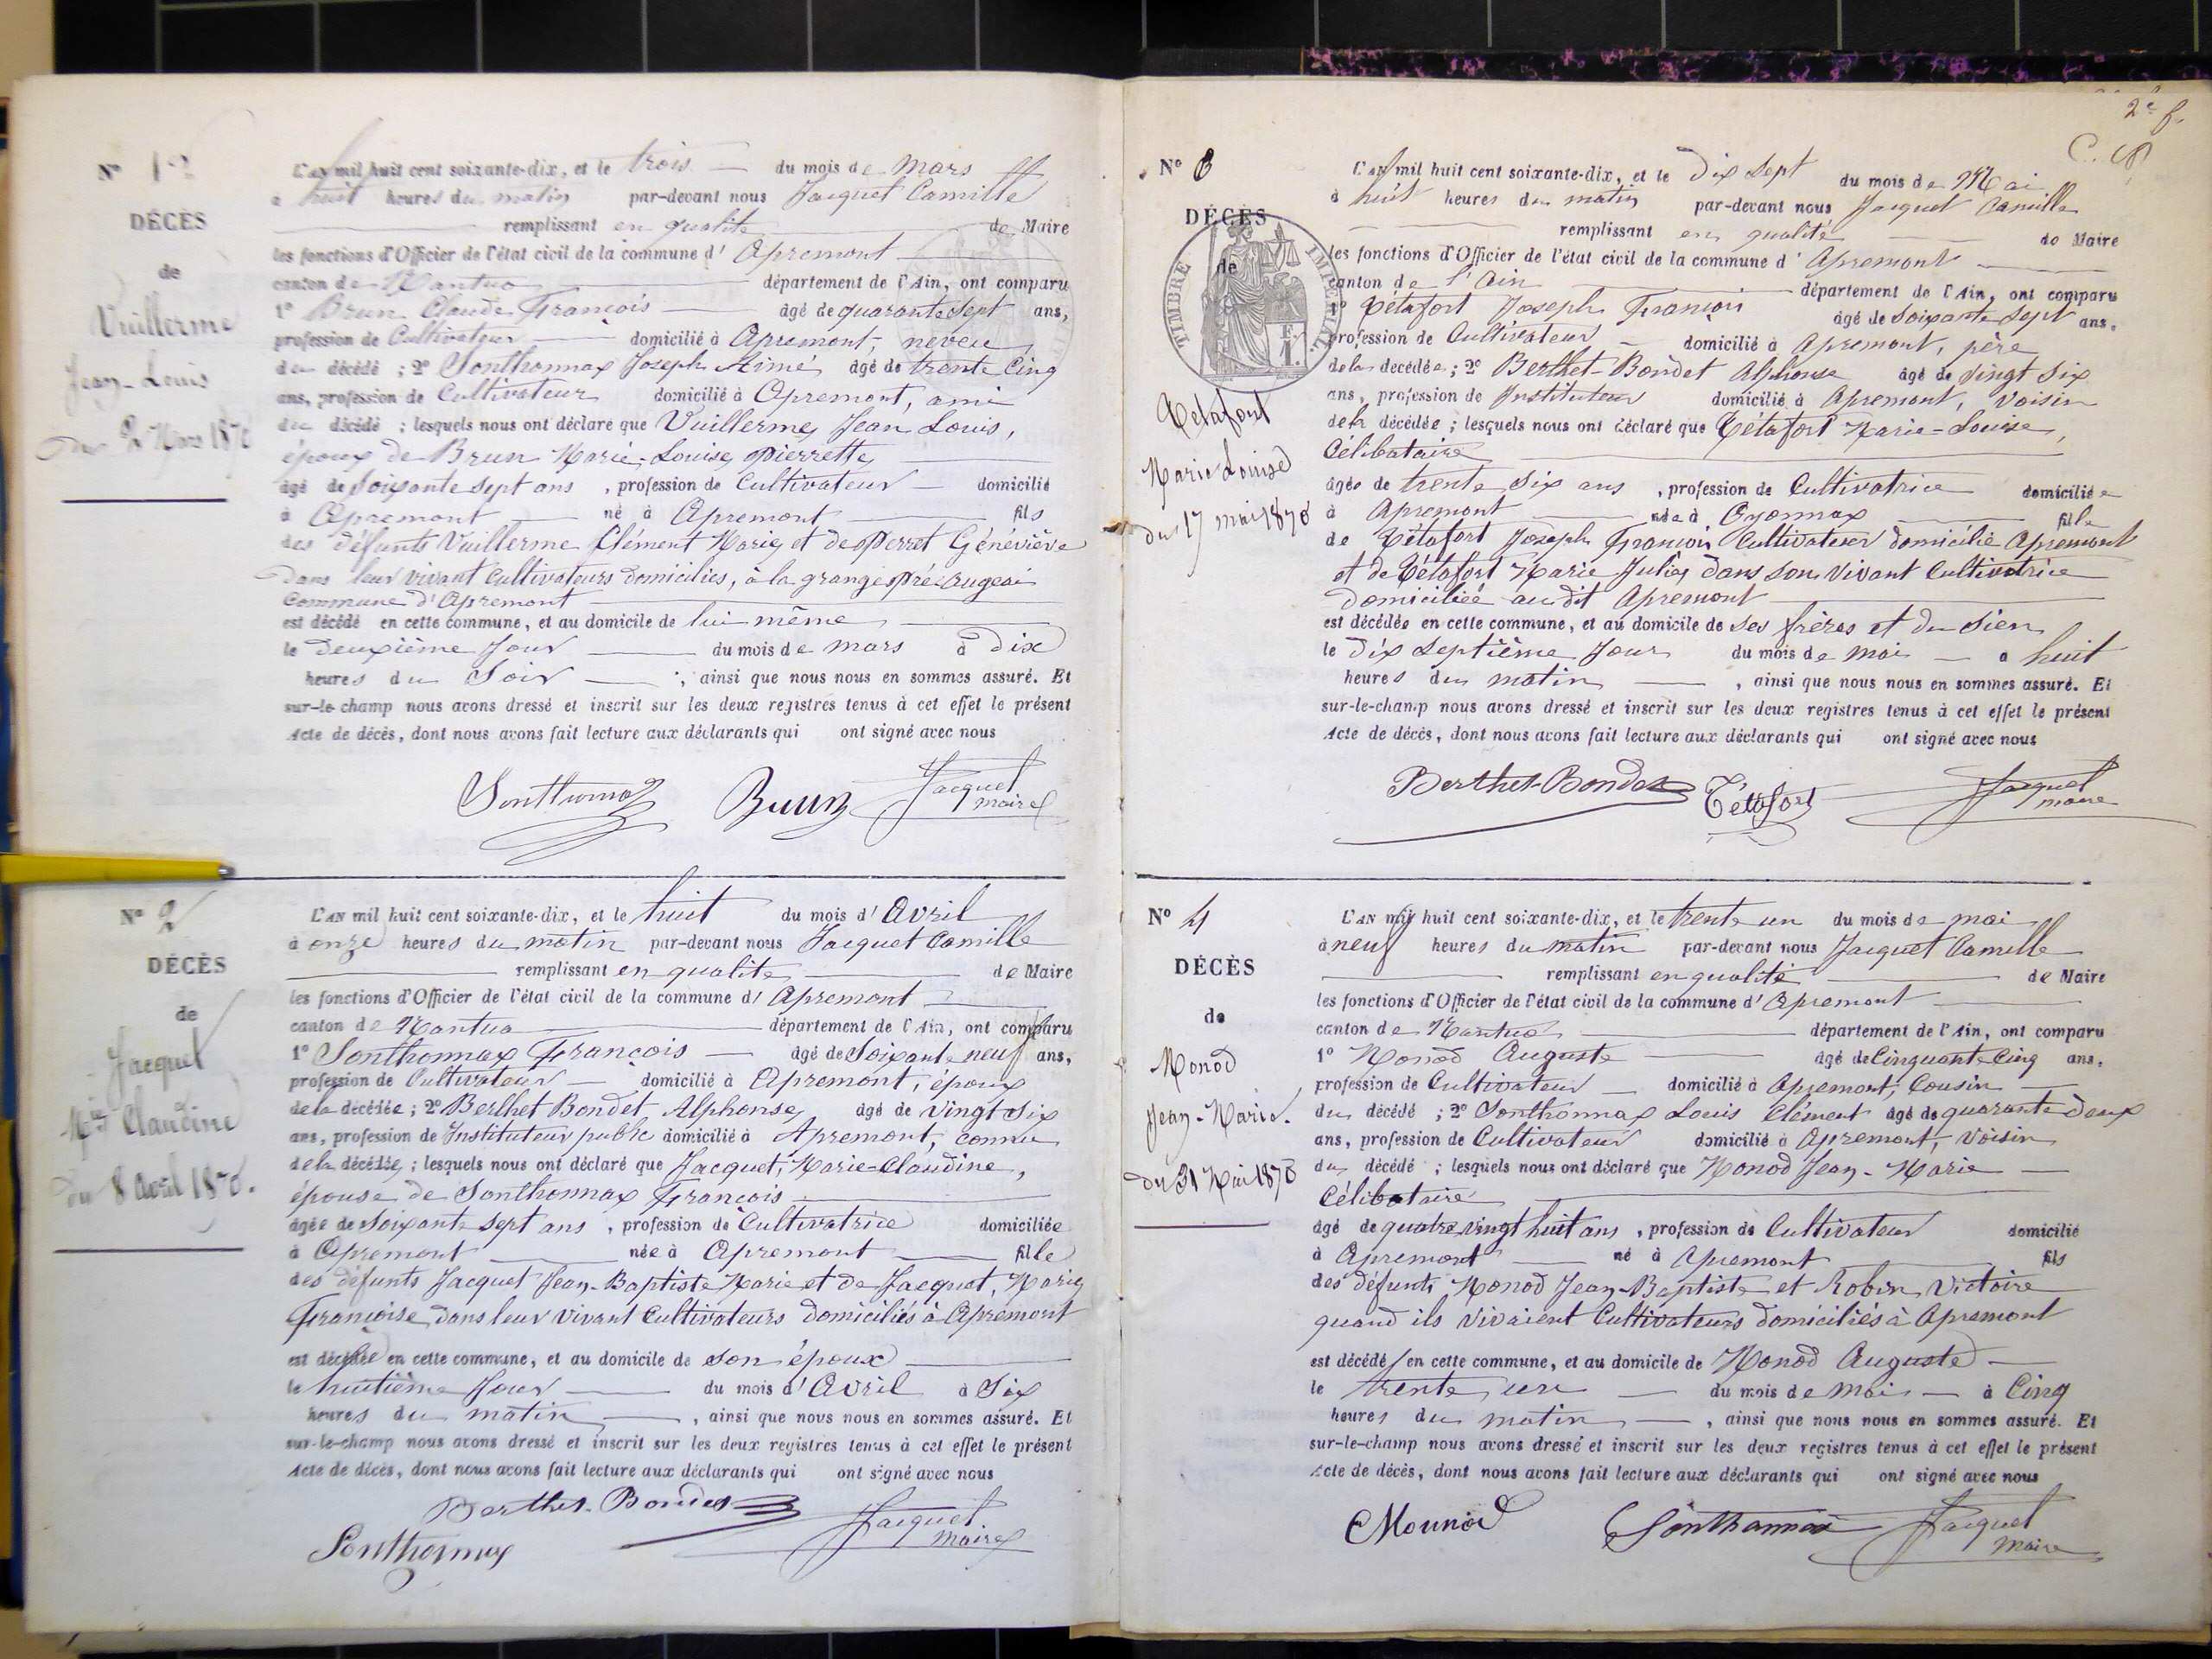 N° 1
DÉCÈS
de
Vuillerme
Jean-Louis
du 2 Mars 1870
L'AN mil huit cent soixante-dix, et le trois du mois de Mars
à huit heures du matin par-devant nous Jacquet Camille
remplissant en qualité de Maire
les fonctions d'Officier de l'état civil de la commune d'Apremont
canton de Nantua département de l'Ain, ont comparu
1° Brun Claude François âgé de quarante sept ans,
profession de Cultivateur domicilié à Apremont, neveu
du décédé ; 2° Sonthonnax Joseph Aimé âgé de trente cinq
ans, profession de Cultivateur domicilié à Apremont, ami
du décédé ; lesquels nous ont déclaré que Vuillerme, Jean Louis,
époux de Brun Marie-Louise, Pierrette,
âgé de soixante sept ans, profession de Cultivateur domicilié
à Apremont né à Apremont fils
des défunts Vuillerme Clément Marie, et de Perret Généviève
dans leur vivant Cultivateurs domiciliés, à la grange
commune d'Apremont
est décédé en cette commune, et au domicile de lui même
le deuxième jour du mois de mars à dix
heures du soir, ainsi que nous nous en sommes assuré. Et
sur-le-champ nous avons dressé et inscrit sur les deux registres tenus à cet effet le présent
Acte de décès, dont nous avons fait lecture aux déclarants qui ont signé avec nous
Sonthonnax Brun Jacquet
maire
N° 2
DÉCÈS
de
Jacquet
Mie Claudine
du 8 Avril 1870.
L'AN mil huit cent soixante-dix, et le huit du mois d'Avril
à onze heures du matin par-devant nous Jacquet Camille
remplissant en qualité de Maire
les fonctions d'Officier de l'état civil de la commune d'Apremont
canton de Nantua département de l'Ain, ont comparu
1° Sonthonnax François âgé de soixante neuf ans,
profession de Cultivateur domicilié à Apremont, époux
de la décédée ; 2° Berthet Bondet Alphonse, âgé de vingt six
ans, profession de Instituteur public domicilié à Apremont, connu
de la décédée ; lesquels nous ont déclaré que Jacquet, Marie-Claudine,
épouse de Sonthonnax François
âgée de soixante sept ans, profession de Cultivatrice domiciliée
à Apremont née à Apremont fille
des défunts Jacquet Jean-Baptiste Marie et de Jacquet, Marie
Françoise, dans leur vivant Cultivateurs domiciliés à Apremont
est décédée en cette commune, et au domicile de son époux
le huitième jour du mois d'Avril à six
heures du matin, ainsi que nous nous en sommes assuré. Et
sur-le-champ nous avons dressé et inscrit sur les deux registres tenus à cet effet le présent
Acte de décès, dont nous avons fait lecture aux déclarants qui ont signé avec nous
Berthet-Bondet
Sonthonnax Jacquet
maire
2e f.
N° 3
DÉCÈS
de
TIMBRE IMPÉRIAL
Tétafort
Marie Louise
du 17 mai 1870
L'AN mil huit cent soixante-dix, et le dix sept du mois de Mai
à huit heures du matin par-devant nous Jacquet Camille
remplissant en qualité de Maire
les fonctions d'Officier de l'état civil de la commune d'Apremont
canton de l'Ain département de l'Ain, ont comparu
1° Tétafort Joseph François âgé de soixante sept ans,
profession de Cultivateur domicilié à Apremont, père
de la décédée ; 2° Berthet-Bondet Alphonse âgé de vingt six
ans, profession de Instituteur domicilié à Apremont, voisin
de la décédée ; lesquels nous ont déclaré que Tétafort Marie-Louise,
Célibataire
âgée de trente six ans, profession de Cultivatrice domiciliée
à Apremont née à Oyonnax fille
de Tétafort Joseph François Cultivateur domicilié Apremont
et de Tétafort Marie Julie, dans son vivant Cultivatrice
domiciliée audit Apremont
est décédée en cette commune, et au domicile de ses frères et du sien
le dix septième jour du mois de mai à huit
heures du matin, ainsi que nous nous en sommes assuré. Et
sur-le-champ nous avons dressé et inscrit sur les deux registres tenus à cet effet le présent
Acte de décès, dont nous avons fait lecture aux déclarants qui ont signé avec nous
Berthet-Bondet Tétafort Jacquet
maire
N° 4
DÉCÈS
de
Monod
Jean-Marie.
du 31 Mai 1870
L'AN mil huit cent soixante-dix, et le trente un du mois de mai
à neuf heures du matin par-devant nous Jacquet Camille
remplissant en qualité de Maire
les fonctions d'Officier de l'état civil de la commune d'Apremont
canton de Nantua département de l'Ain, ont comparu
1° Monod Auguste âgé de Cinquante Cinq ans,
profession de Cultivateur domicilié à Apremont, Cousin
du décédé ; 2° Sonthonnax Louis Clément âgé de quarante deux
ans, profession de Cultivateur domicilié à Apremont, voisin
du décédé ; lesquels nous ont déclaré que Monod Jean-Marie
Célibataire
âgé de quatre vingt huit ans, profession de Cultivateur domicilié
à Apremont né à Apremont fils
des défunts Monod Jean-Baptiste et Robin Victoire
quand ils vivaient Cultivateurs domiciliés à Apremont
est décédé en cette commune, et au domicile de Monod Auguste
le trente un du mois de mai à Cinq
heures du matin, ainsi que nous nous en sommes assuré. Et
sur-le-champ nous avons dressé et inscrit sur les deux registres tenus à cet effet le présent
Acte de décès, dont nous avons fait lecture aux déclarants qui ont signé avec nous
Mounod Sonthonnax Jacquet
maire